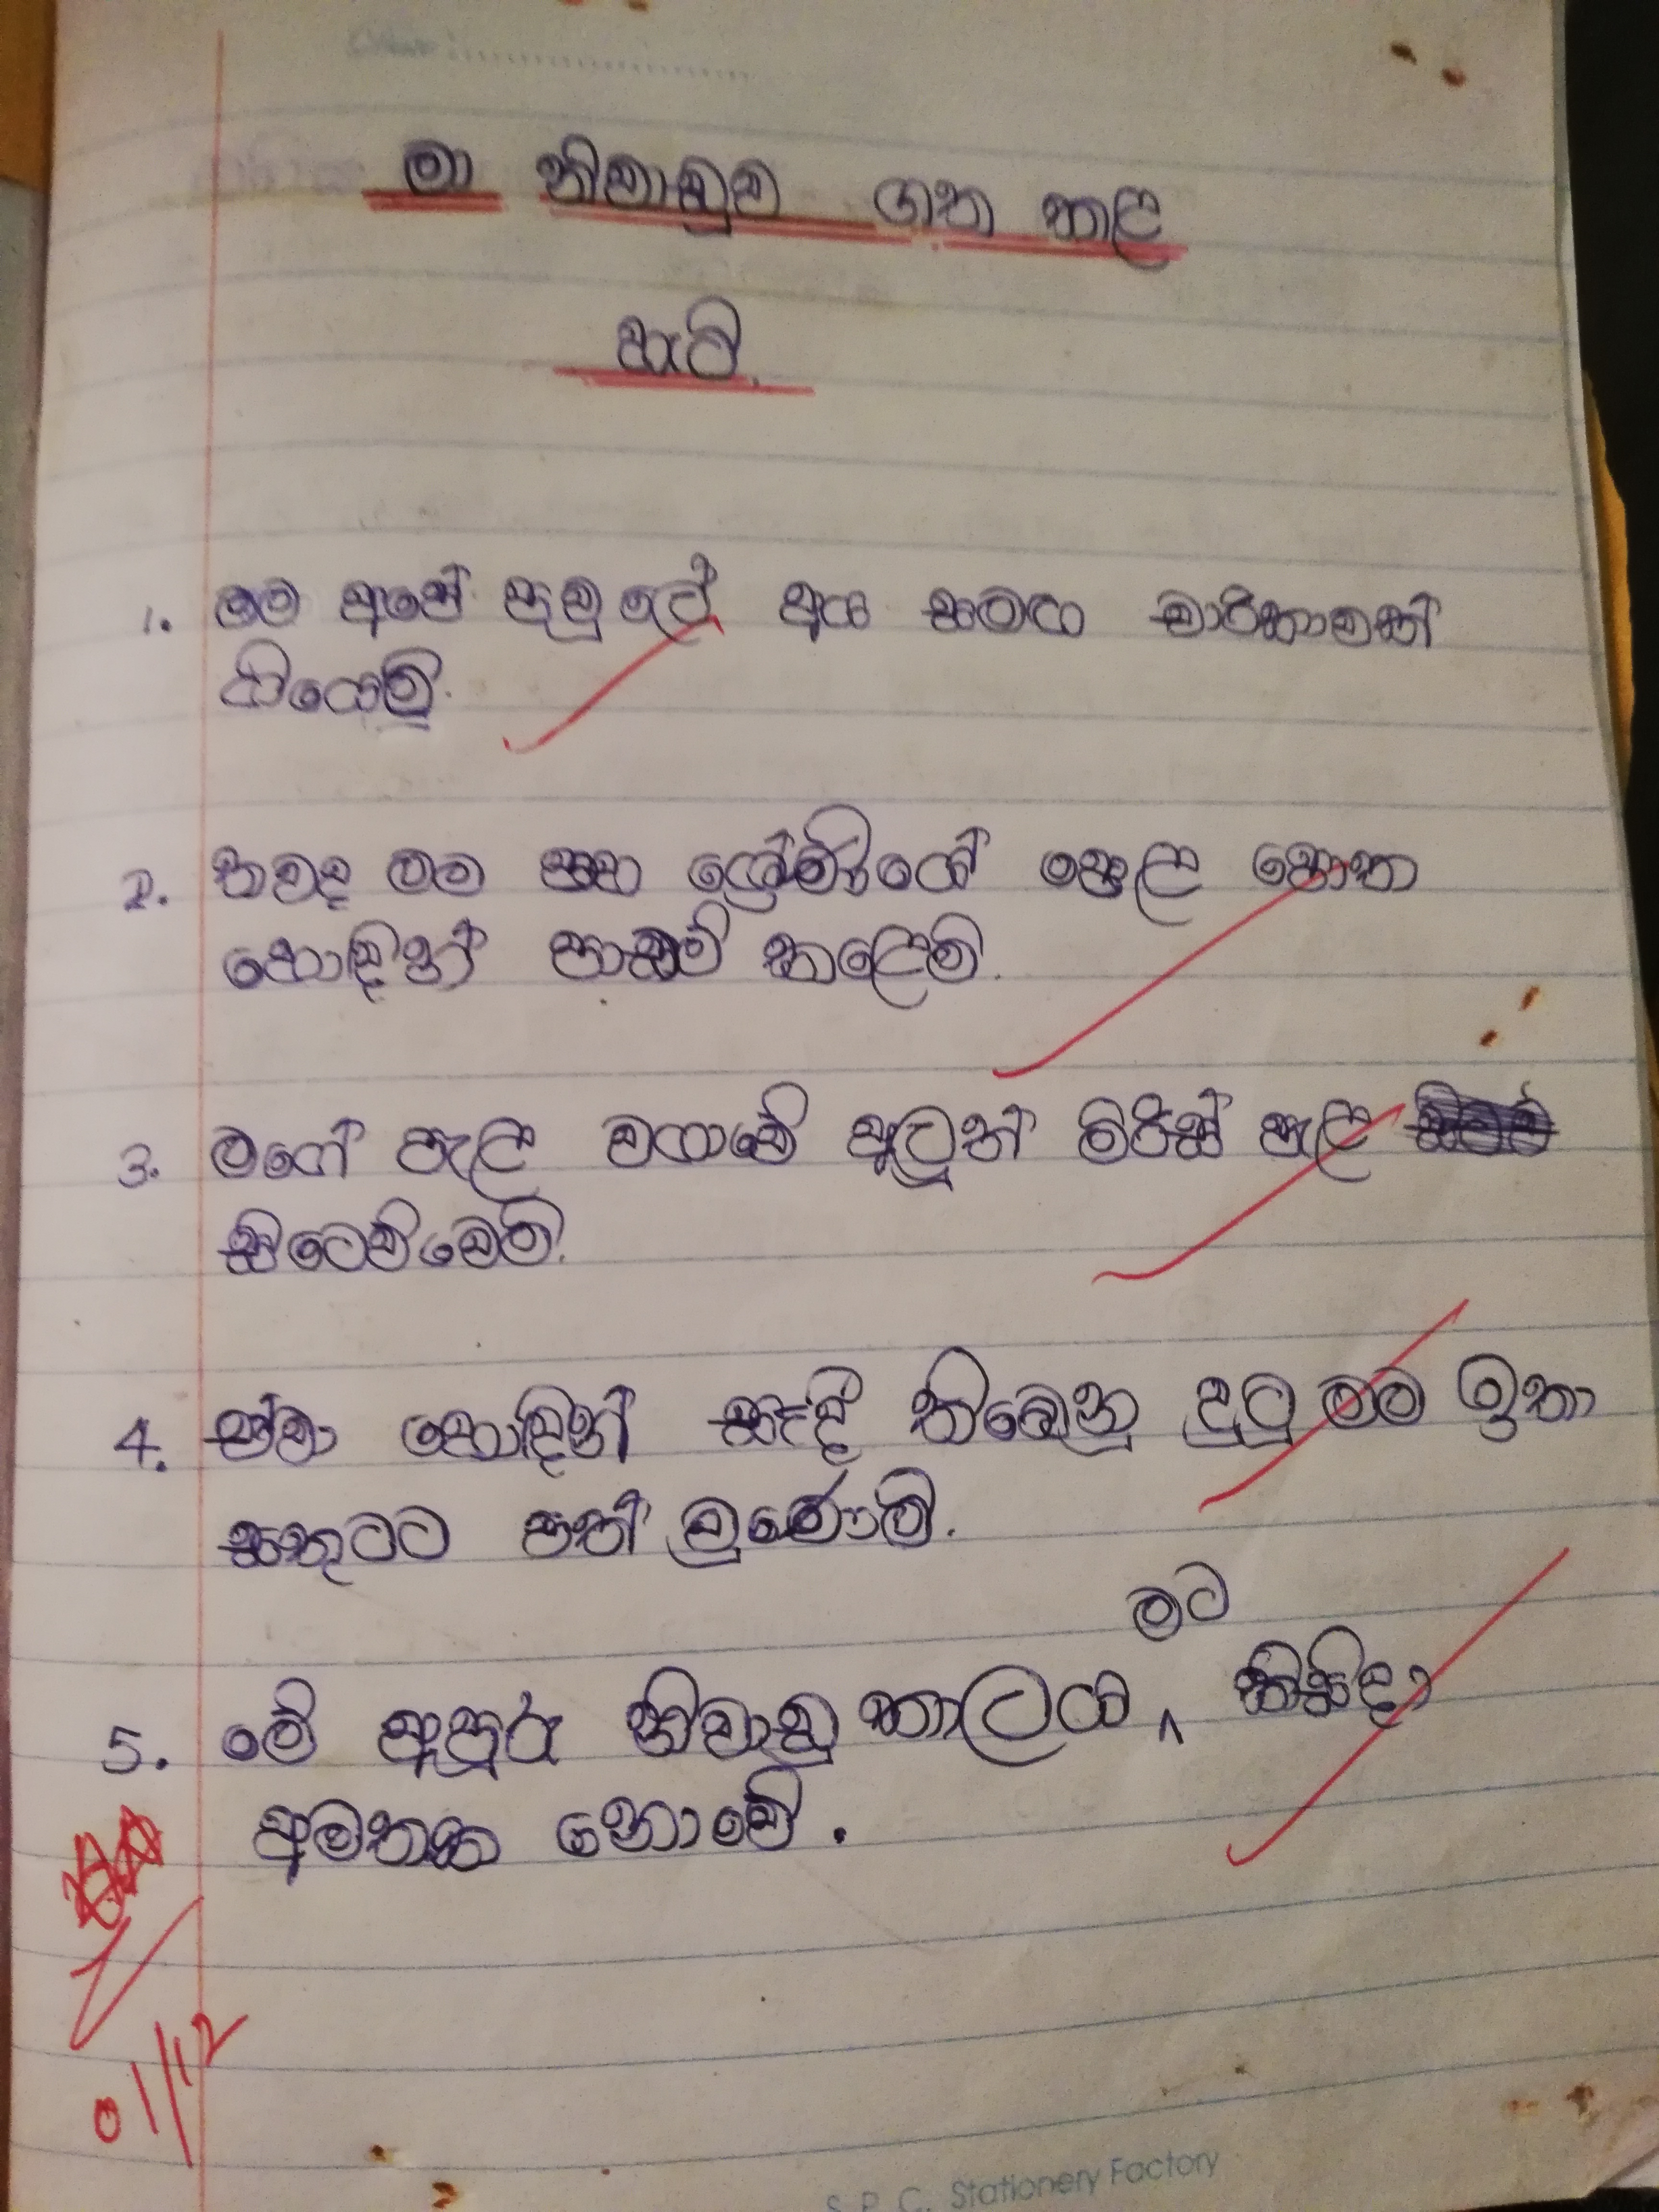 මා නිවාඩුව ගත කළ
හැටි.
1. මම අපේ පවුලේ අය සමඟ චාරිකාවක්
ගියෙමි.
2. තවද මම පහ ශ්‍රේණියේ පෙළ පොත
හොඳින් පාඩම් කළෙමි.
3. මගේ පැළ වගාවේ අලුත් මිරිස් පැළ
සිටෙව්වෙමි.
4. ඒවා හොඳින් සෑදී තිබෙනු දුටු මම ඉතා
සතුටට පත් වුණෙමි.
මට
5. මේ අපූරු නිවාඩු කාලය ^ කිසිදා
අමතක නොවේ.
01/12
S. P. C. Stationery Factory